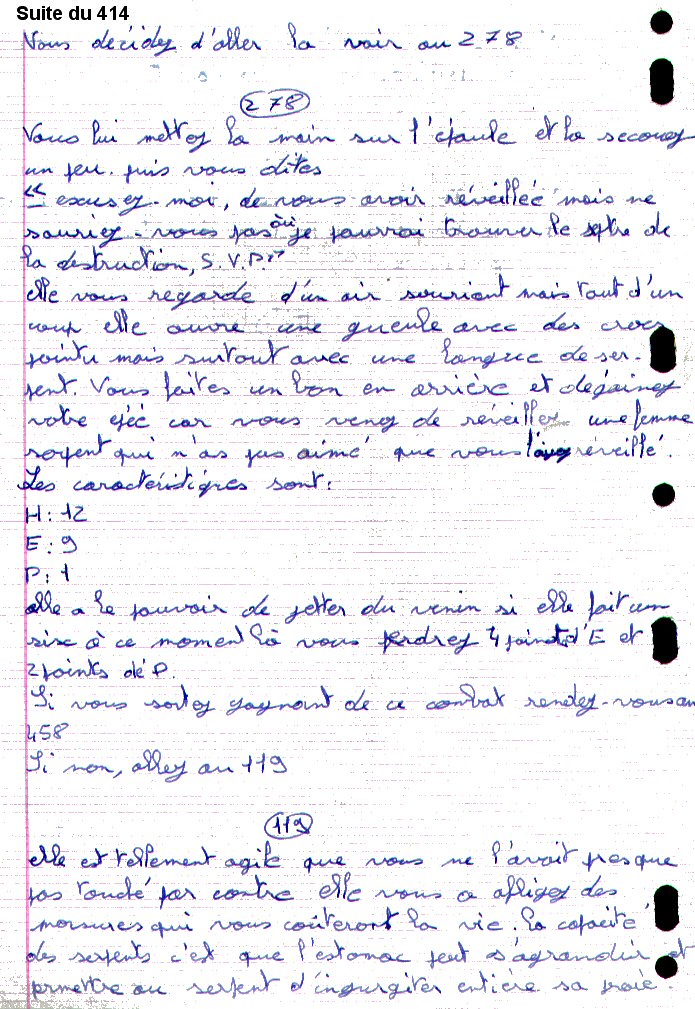 Suite du 414
Vous decidez d'aller la voir au 278
278
Vous lui mettez la main sur l'épaule et la secouez
un peu. puis vous dites
" excusez-moi, de vous avoir réveilleé mais ne
sauriez-vous pas où je pourrai trouver le sptre de
la destruction, S.V.P."
elle vous regarde d'un air souriant mais tout d'un
coup elle ouvre une gueule avec des crocs
pointu mais surtout avec une langue de ser-
pent. Vous faites un bon en arrière et dégainez
votre épéé car vous venez de réveiller une femme
serpent qui n'as pas aimé que vous l'ayez réveillé.
Les caractéristiqres sont:
H: 12
E: 9
P: 1
elle a le pouvoir de jetter du venin si elle fait un
sisc à ce moment là vous perdrez 4 points d'E et
2 points de P.
Si vous sortez gagnant de ce combat rendez-vous au
458
Si non, allez au 119
119
elle est tellement agile que vous ne l'avait presque
pas touché par contre elle vous a afligez des
morsures qui vous coûteront la vie. la capacité
des serpents c'est que l'estomac peut s'agrandir et
prmettre au serpent d'ingurgiter entière sa proie.